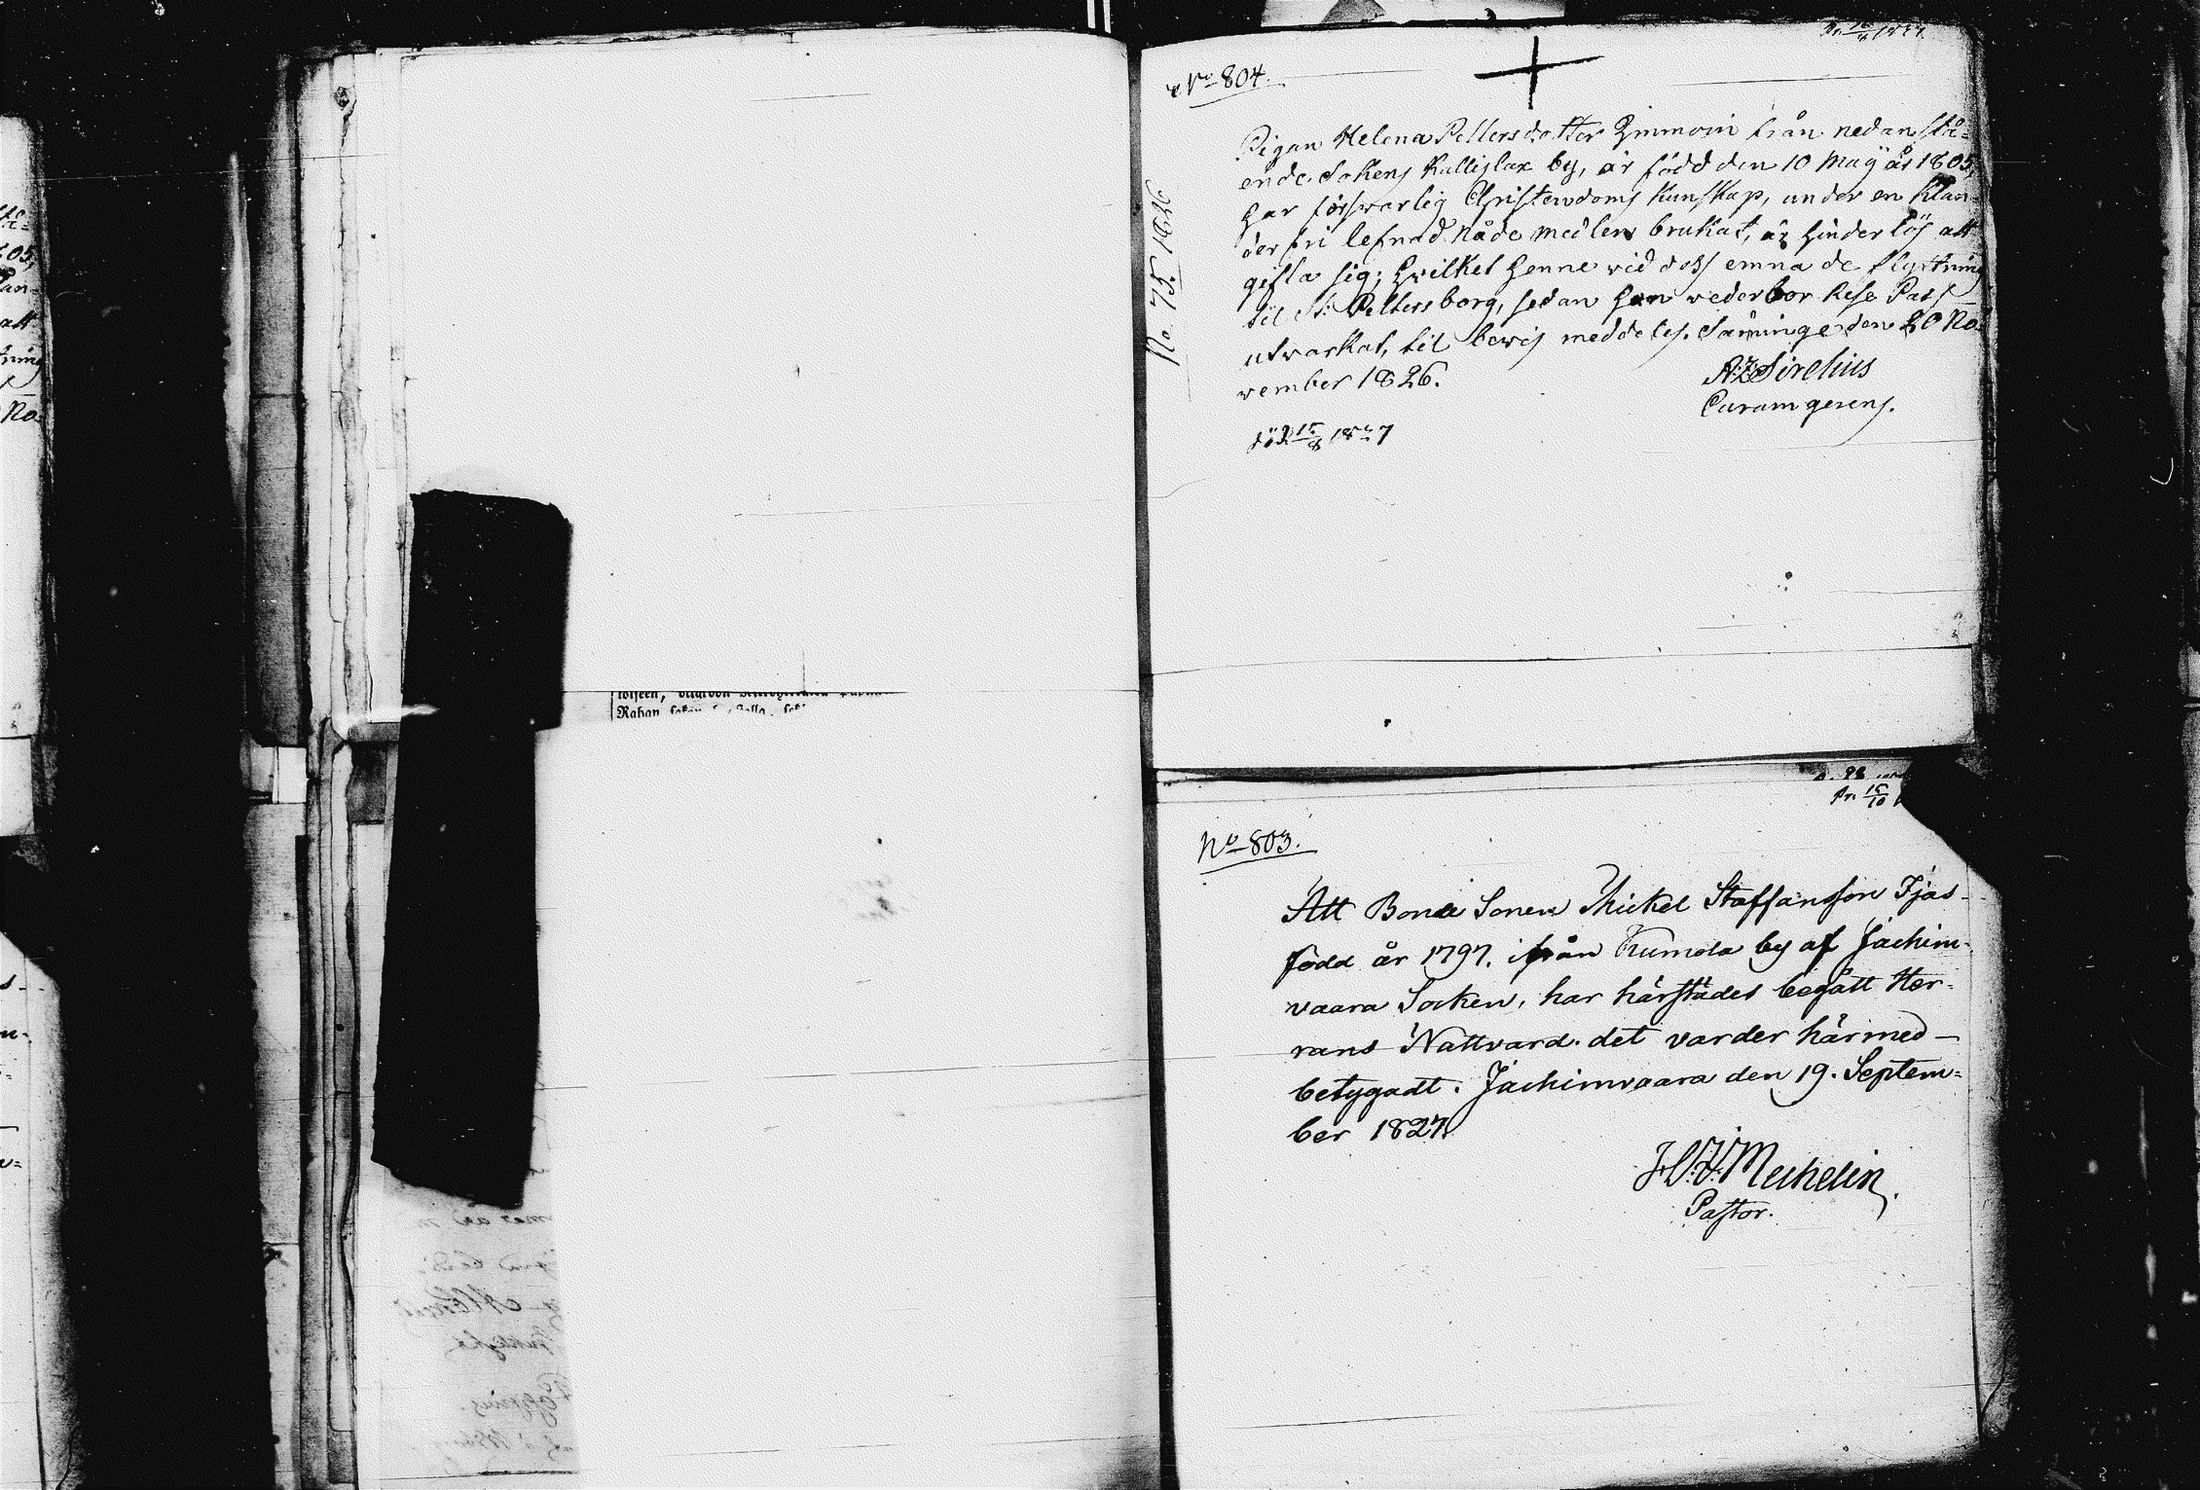 No 804.
No. 75. 1826
Pigan Helena Pettersdotter Himmoin från nedanstå=
ende Sokens Kallislax by, är född den 10 Maÿ år 1805,
har förswarlig Christendoms Kunskap, under en klan=
derfri lefnad Nådemedlen brukat, är hinderlös att
gifta sig; hwilket henne wid dess emnade flyttning
til St: Pettersborg, sedan hon wederbör. Rese Pass
utwärkat, til bewis meddeles. Sämminge den 20 No=
wember 1826.
Sirelius
Curam gerens.
död 15/8 1827
No 803.
Att Bonde Sonen Mickel Staffansson Tjas-
född år 1797, ifrån Kumola by af Jachim-
vaara Socken, har härstädes begått Her-
rans Nattvard, det varder härmed
betygadt. Jachimvaara den 19. Septem=
ber 1827.
Mechelin.
Pastor.